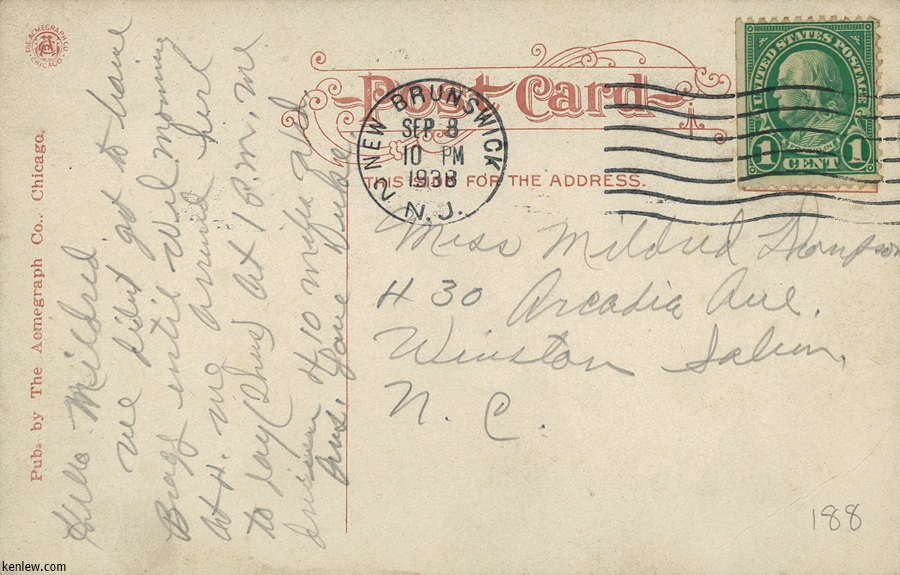 THE ACMEGRAPH CO.
CHICAGO
Pub. by The Acmegraph Co., Chicago.
Post Card
THIS SIDE FOR THE ADDRESS.
NEW BRUNSWICK
SEP 8
10 PM
1938
N.J.
2
UNITED STATES POSTAGE
FRANKLIN
1 CENT 1
Hello Mildred
we didnt get to leave
Bragg until Wed morning
at 4. we arrived here
to day (Thurs) at 1 P.M. we
driven 410 miles
Miss Mildred Thompson
430 Arcadia Ave.
Winston Salem,
N. C.
188
kenlew.com